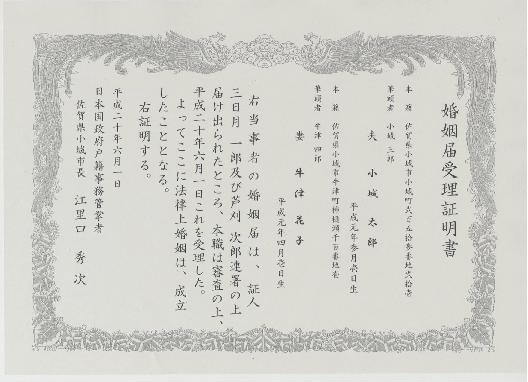 婚姻届受理証明書
本籍 佐賀県小城市小城町弐百五拾参番地弐拾壱
筆頭者 小城 三郎
夫 小城 太郎
平成元年参月壱日生
本籍 佐賀県小城市牛津町柿樋瀬千百番地壱
筆頭者 牛津 四郎
妻 牛津 花子
平成元年四月壱日生
右当事者の婚姻届は、証人
三日月 一郎及び芦刈 次郎連署の上
届け出られたところ、本職は審査の上、
平成二十年六月一日これを受理した。
よってここに法律上婚姻は、成立
したこととなる。
右証明する。
平成二十年六月一日
日本国政府戸籍事務管掌者
佐賀県小城市長 江里口 秀次